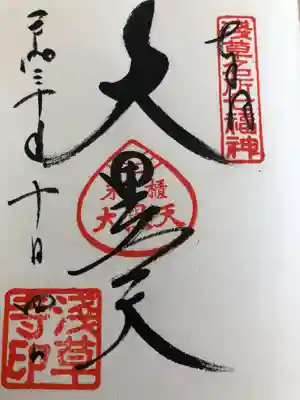 奉拝
浅草名所七福神
大黒天
米櫃
大黒天
平成三十年十月四日
浅草
寺印